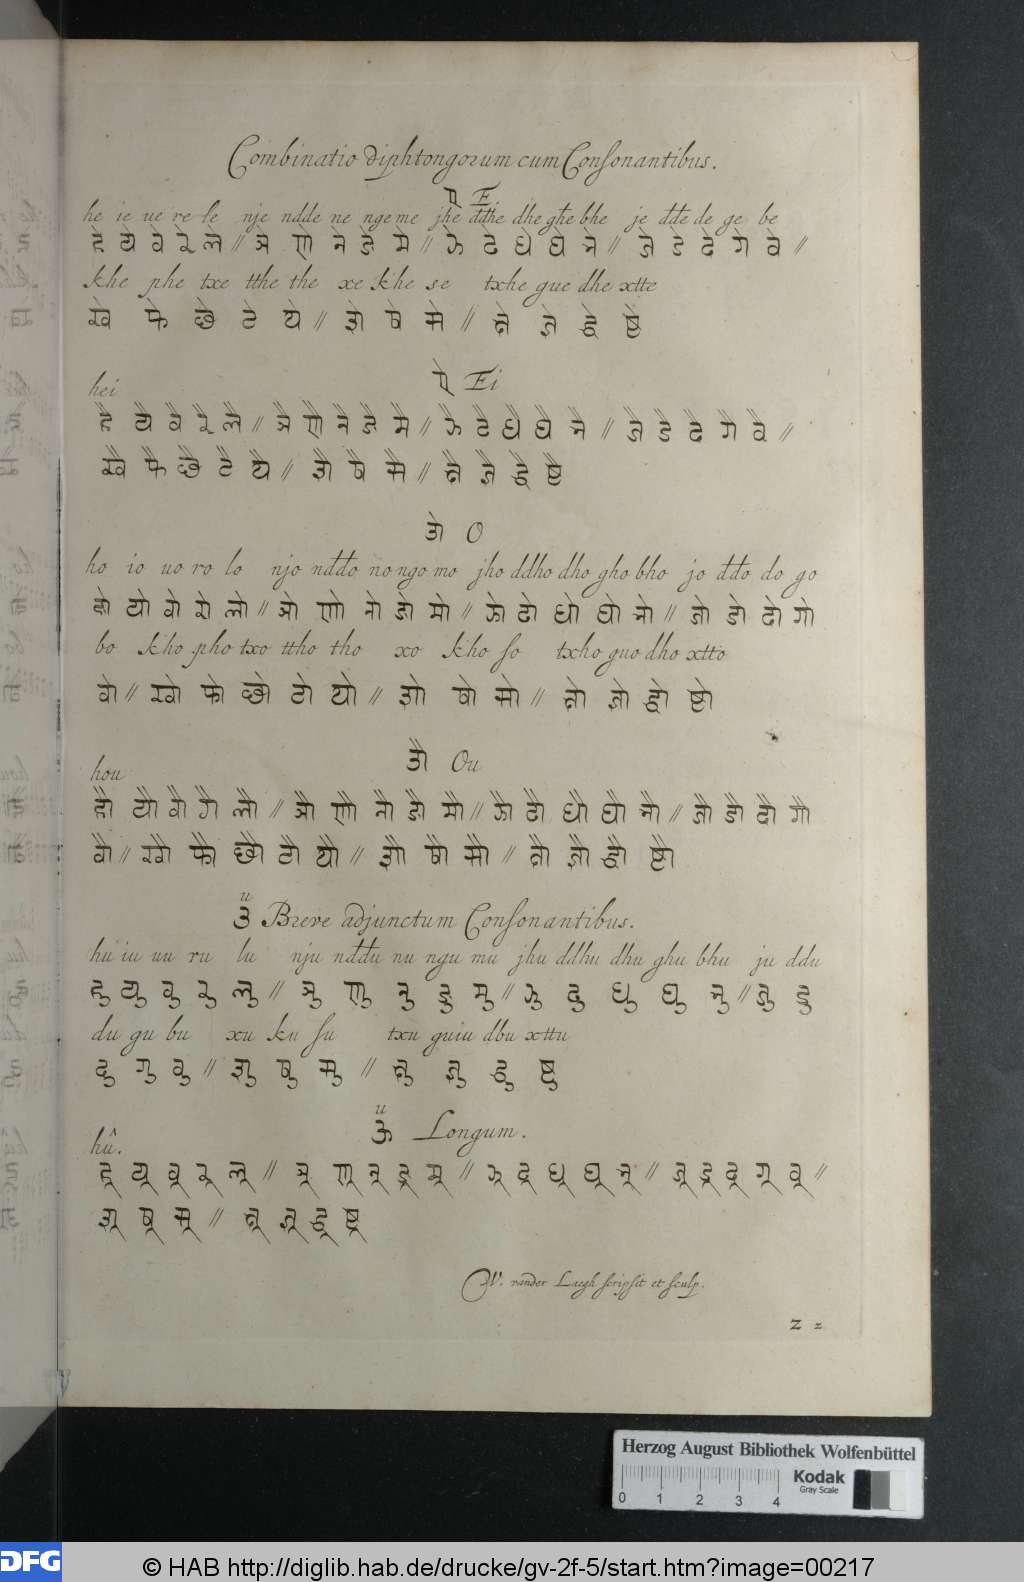 Combinatio diphtongorum cum Consonantibus.
ए E
he ie ue re le nje ndde ne nge me jhe ddhe dhe ghe bhe je dde de ge be
हे ये वे रे ले // ञे णे ने ङे मे // झे ढे धे घे भे // जे डे दे गे बे //
khe phe txe tthe the xe khe se txhe gue dhe xtte
खे फे छे ठे थे // शे षे से // क्षे ज्ञे ढे ष्टे
ऐ Ei
hei
है यै वै रै लै // ञै णै नै ङै मै // झै ढै धै घै भै // जै डै दै गै बै //
खै फै छै ठै थै // शै षै सै // क्षै ज्ञै ढै ष्टै
ओ O
ho io uo ro lo njo nddo no ngo mo jho ddho dho gho bho jo ddo do go
हो यो वो रो लो // ञो णो नो ङो मो // झो ढो धो घो भो // जो डो दो गो
bo kho pho txo ttho tho xo kho so txho guo dho xtto
बो // खो फो छो ठो थो // शो षो सो // क्षो ज्ञो ढो ष्टो
औ Ou
hou
हौ यौ वौ रौ लौ // ञौ णौ नौ ङौ मौ // झौ ढौ धौ घौ भौ // जौ डौ दौ गौ
बौ // खौ फौ छौ ठौ थौ // शौ षौ सौ // क्षौ ज्ञौ ढौ ष्टौ
u
उ Breve adjunctum Consonantibus.
hu iu uu ru lu nju nddu nu ngu mu jhu ddhu dhu ghu bhu ju ddu
हु यु वु रु लु // ञु णु नु ङु मु // झु ढु धु घु भु // जु डु
du gu bu xu ku su txu guiu dbu xttu
दु गु बु // शु षु सु // क्षु ज्ञु ढु ष्टु
u
ऊ Longum.
hû.
हू यू वू रू लू // ञू णू नू ङू मू // झू ढू धू घू भू // जू डू दू गू बू //
शू षू सू // क्षू ज्ञू ढू ष्टू
W. vander Laegh scripsit et sculp.
Z z
Herzog August Bibliothek Wolfenbüttel
0 1 2 3 4
Kodak
Gray Scale
DFG
© HAB http://diglib.hab.de/drucke/gv-2f-5/start.htm?image=00217